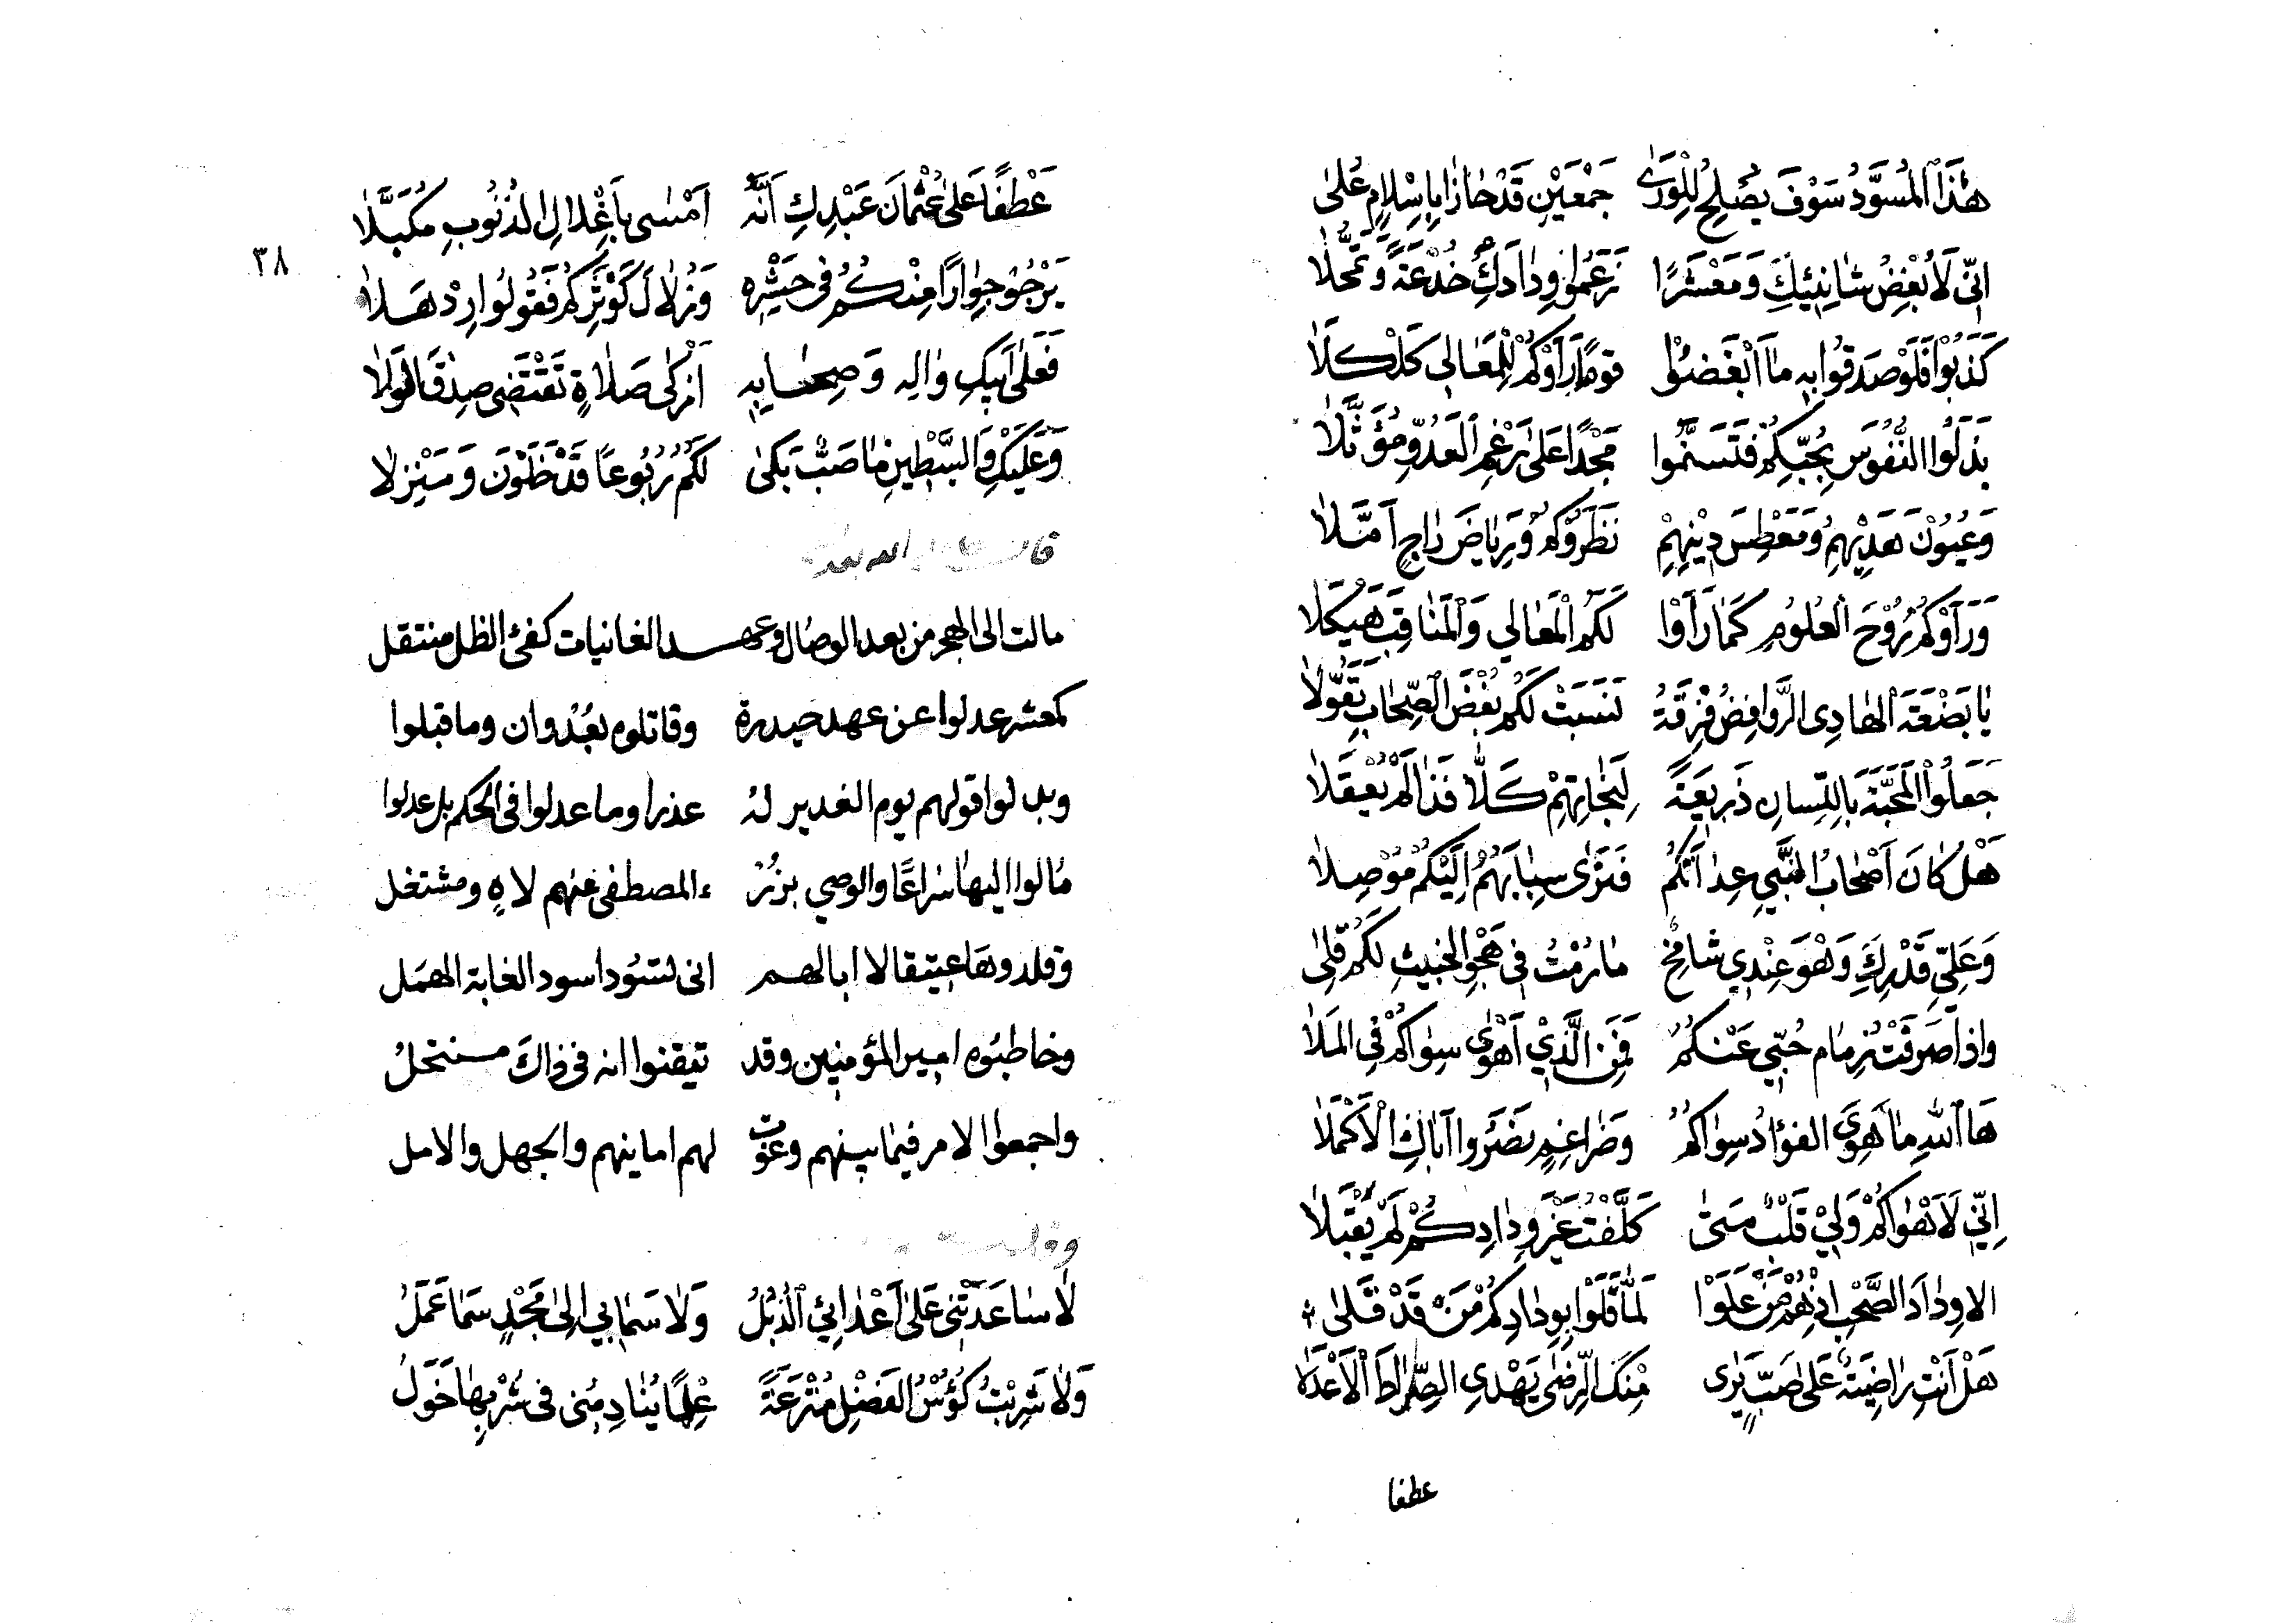 هٰذَا الْمُسَوَّدُ سَوْفَ يُصْلِحُ لِلْوَرٰى جَمْعَيْنِ قَدْ حَازَا بِاِسْلَامٍ عُلىٰ
اِنّى لَاُبْغِضُ شَانِئِيْكَ وَمَعْشَرًا زَعَمُوا وِدَادَكِ خُدْعَةً وَتَمَحُّلَا
كَذَبُوْا فَلَوْ صَدَقُوا بِهِ مَا اَبْغَضُوْا قَوْمًا رَاَوْكُمْ لِلْمَعَالِى كَلْكَلَا
بَذَلُوا النُّفُوسَ بِحُبِّكُمْ فَتَسَنَّمُوا مَجْدًا عَلىٰ رَغْمِ الْعَدُوِّ مُؤَثَّلَا
وَعُيُوْنَ هَدْيِهِمُ وَمَعْطِسَ دِيْنِهِمْ نَظَرُوْكُمُ وَرِيَاضَ رَاجٍ اَمَّلَا
وَرَاَوْكُمُ رُوْحَ الْعُلُومِ كَمَا رَاَوْا لَكُمُ الْمَعَالِي وَالْمَنَاقِبَ هَيْكَلَا
يَا بَضْعَةَ الْهَادِى الرَّوَافِضُ فِرْقَةٌ نَسَبَتْ لَكُمْ بُغْضَ الصِّحَابِ تَقَوُّلَا
جَعَلُوْا الْمَحَبَّةَ بِاللِّسَانِ ذَرِيعَةً لِنَجَاتِهِمْ كَلَّا فَذَا لَمْ يُعْقَلَا
هَلْ كَانَ اَصْحَابُ النَّبِيِ عِدَاتَكُمْ فَنَرٰى سِبَابَهُمُ اِلَيْكُمْ مُوْصِلَا
وَعَلِيِّ قَدْرِكِ وَهْوَ عِنْدِي شَامِخٌ مَا رُمْتُ فِى هَجْوِ الْخَبِيثِ لَكُمْ قِلٰى
وَاِذَا صَرَفْتُ زِمَامَ حُبِّي عَنْكُمُ فَمَنِ الَّذِيْ اَهْوٰى سِوَاكُمْ فِي الْمَلَا
هَا اللهِ مَا هَوِىَ الفؤَادُ سِوَاكُمُ وَضَرَاغِمٍ نَصَرُوا اَبَاكِ الْاَكْمَلَا
اِنِّي لَاَهْوَاكُمْ وَلِيْ قَلْبٌ مَتىٰ كَلَّفْتُ غَيْرَ وِدَادِكُمْ لَمْ يَقْبَلَا
الا وِدَادَ الصَّحْبِ اِذْ هُمْ مَنْ عَلَوْا لَمَّا قَلَوْا بِوِدَادِكُمْ مَنْ قَدْ قَلىٰ
هَلْ اَنْتِ رَاضِيَةٌ عَلىٰ صَبٍّ يَرٰى مِنْكِ الرِّضىٰ يَهْدِى الصِّرَاطَ الْاَعْدَلَا
عطفا
عَطْفًا عَلىٰ عُثْمَانَ عَبْدِكِ اَنَّهُ اَمْسٰى بِاَغْلَالِ الذُنُوبِ مُكَبَّلَا
يَرْجُوْ جِوَارًا مِنْكُمُ فِى حَشْرِهِ وَزُلَالَ كَوْثَرِكُمْ فَقُولُوا رِدْ هَلَا
فَعَلىٰ اَبِيكِ وَالِهِ وَصِحَابِهِ اَزْكٰى صَلَاةٍ تَقْتَضِى صِدْقَ الْوَلَا
وَعَلَيْكِ وَالسِّبْطَيْنِ مَا صَبٌّ بَكٰى لَكُمُ رُبُوعًا قَدْ خَلَوْنَ وَمَنْزِلَا
٣٨
مالت الى الهجر من بعد الوصال وعهد الغانيات كفئ الظل منتقل
كمعشر عدلوا عن عهد حيدرة وقاتلوه بعُدْوان وما قبلوا
وبدلوا قولهم يوم الغدير لهُ عذرا وما عدلوا فى الحكم بل عدلوا
مَالوا اليهَا سَراعًا والوصي برزُ ء المصطفى عنهم لاهٍ ومشتغل
وقلدوهَا عتيقا لا ابا لهم انى تسَوُد اسود الغابة الهمَل
وخاطبُوه امير المؤمنين وقد تيقنوا انه فى ذاكَ منتحلُ
واجمعوا الامر فيمَا بينهم وغوَت لهم امانيهم والجهل والامل
لَا سَاعَدَتْنِى عَلىٰ اَعْدَائِي الذُبُلُ وَلَا سَمَا بِي اِلىٰ مَجْدٍ سَمَا عَمَلُ
وَلَا شَرِبْتُ كُؤُسَ الفَضْلِ مُتْرَعَةً عِلْمًا يُنَادِمُنِى فى شُرْبِهَا خَوَلُ